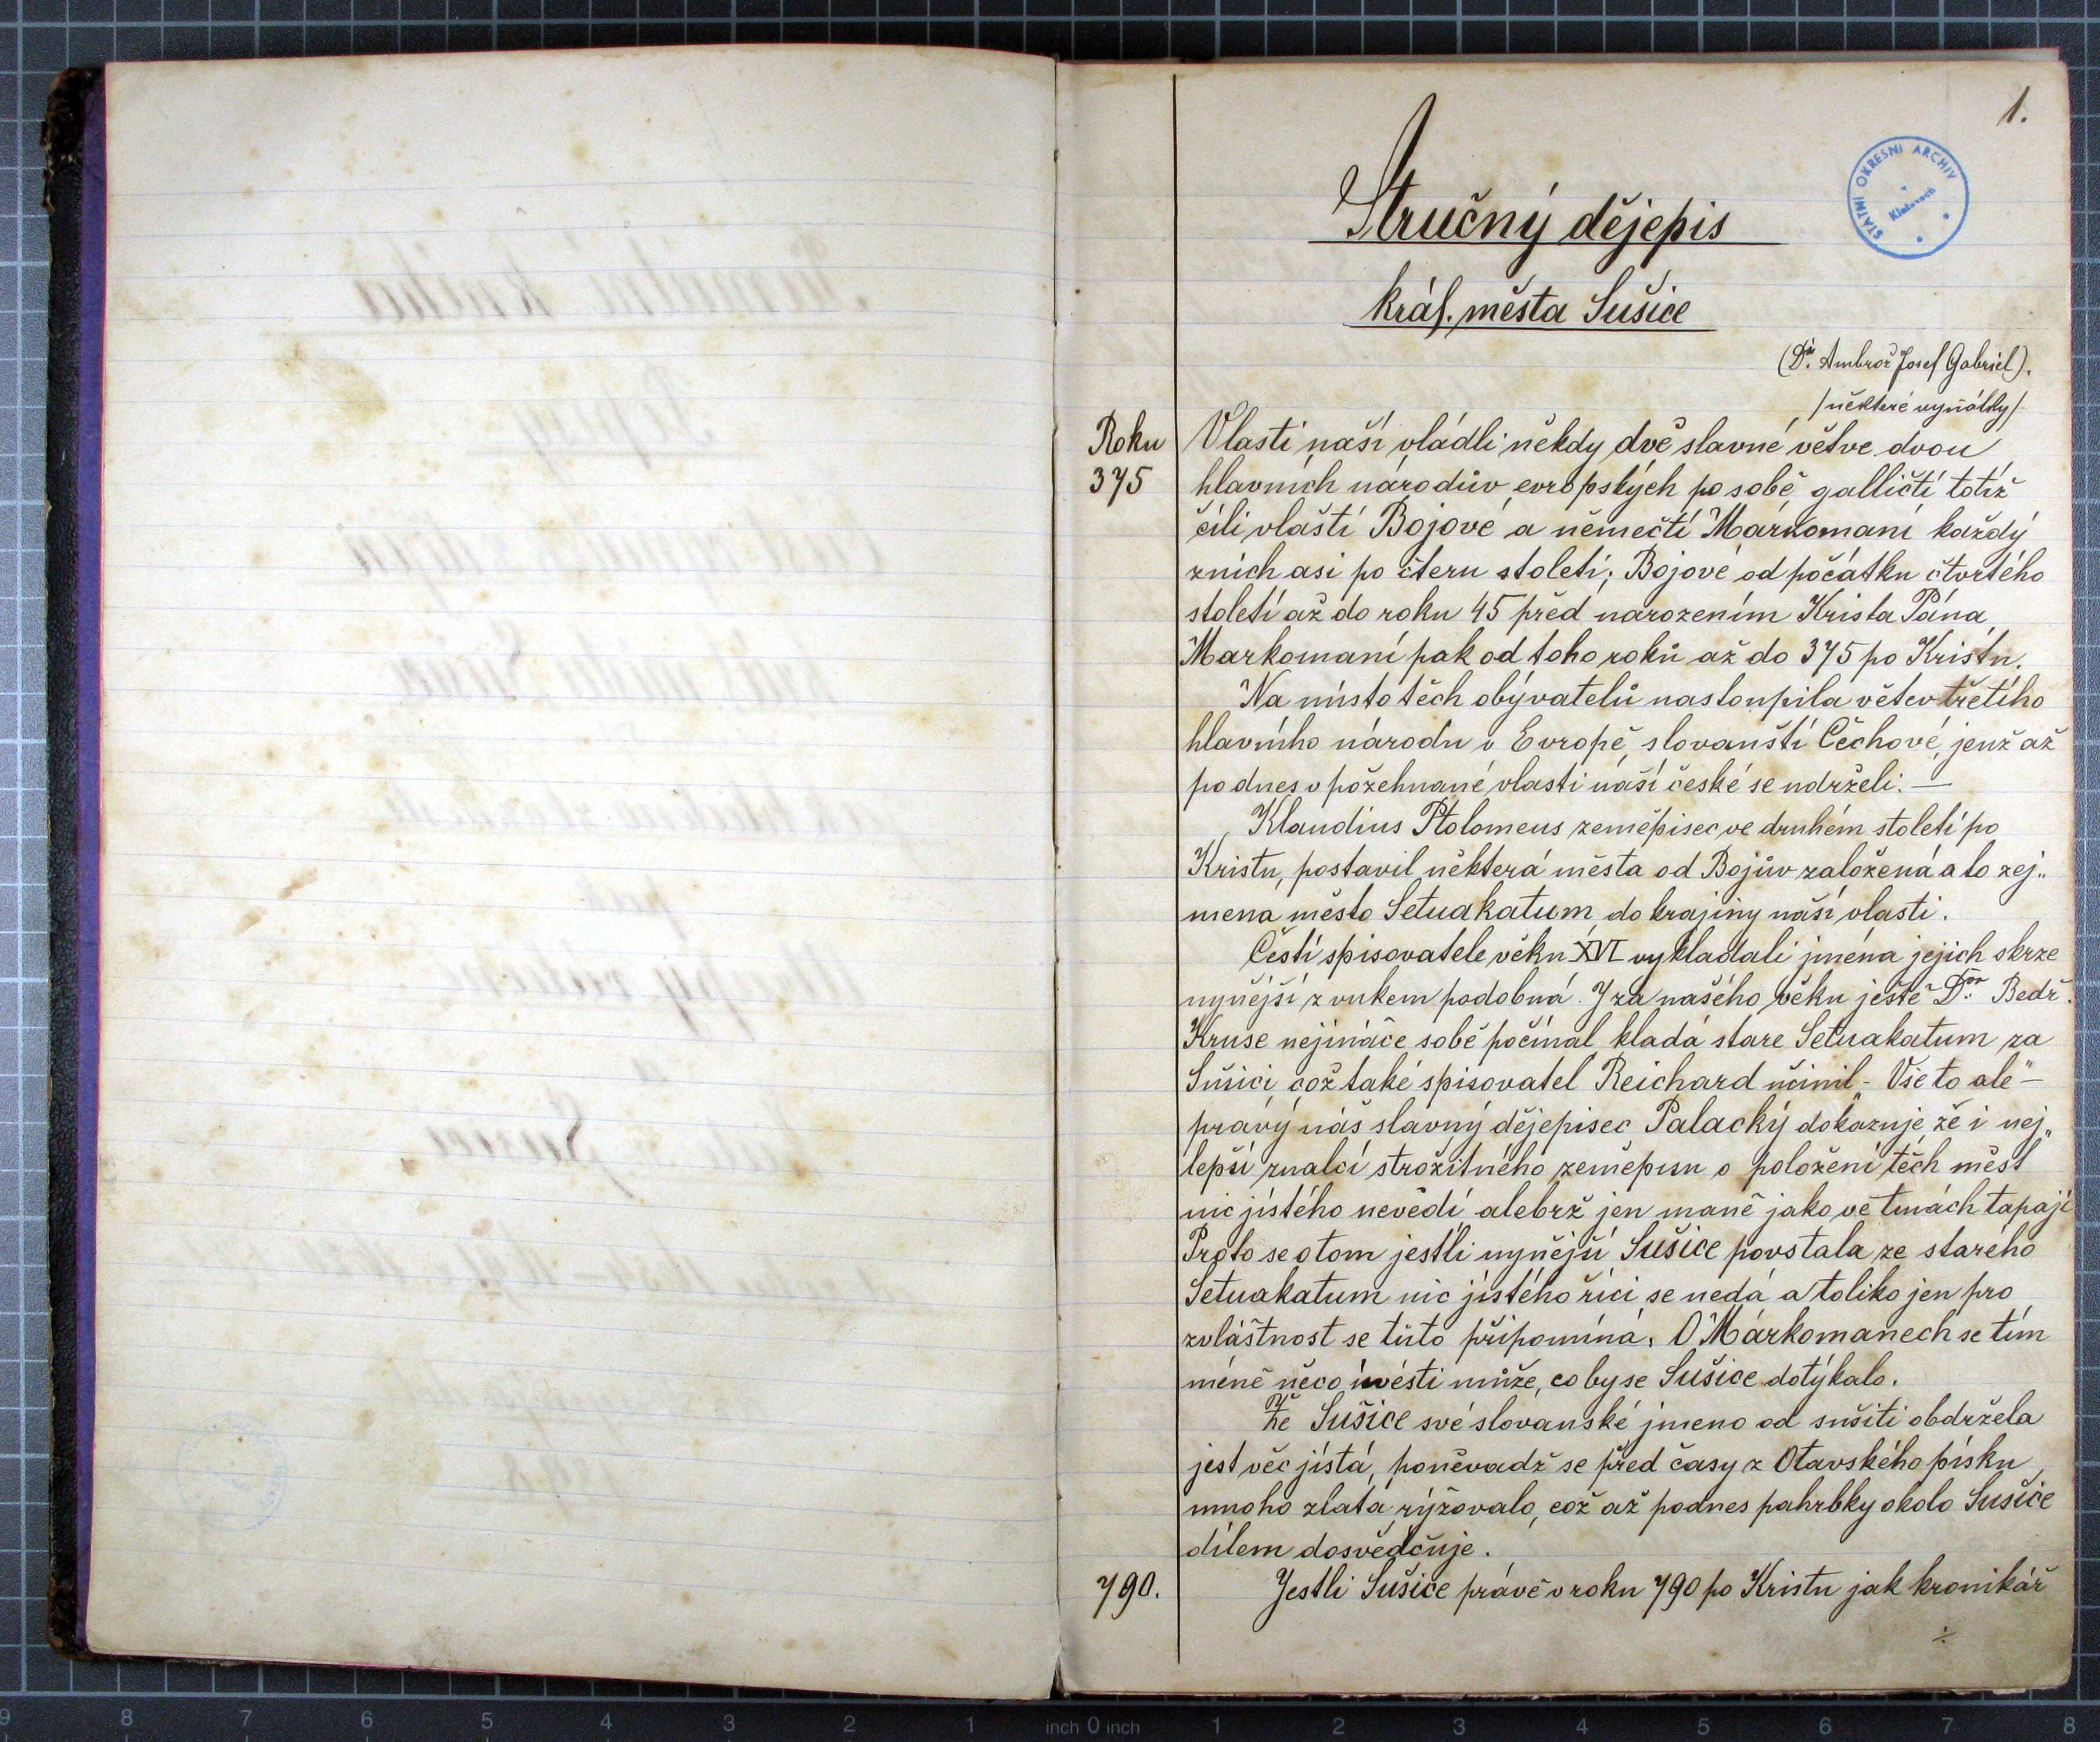 1.
STÁTNÍ OKRESNÍ ARCHIV
Klatovech
Stručný dějepis
král. města Sušice
(Dr. Ambrož Josef Gabriel).
/některé vyňátky/
Roku
375
Vlasti naší vládli někdy dvě slavné větve dvou
hlavních národův evropských po sobě, galličtí totiž
čili vlaští Bojové a němečtí Markomani každý
z nich asi po čteru století; Bojové od počátku čtvrtého
století až do roku 45 před narozením Krista Pána,
Markomaní pak od toho roků až do 375 po Kristu.
Na místo těch obývatelů nastoupila větev třetího
hlavního národu v Evropě, slovanští Čechové, jenž až
po dnes v požehnané vlasti náší české se udrželi. —
Klaudius Ptolomeus zeměpisec ve druhém století po
Kristu, postavil některá města od Bojův založená a to zej„
mena město Setuakatum do krajiny náší vlasti.
Čestí spisovatele věku XVI vykladali jména jejich skrze
nynější zvukem podobná. Y za našého věku ješte Dor. Bedř.
Kruse nejináče sobě počínal klada stare Setuakatum za
Sušici, což také spisovatel Reichard učinil - Vše to ale" –
pravý náš slavný dějepisec Palacký dokazuje že i nej„
lepší znalci strožitného zeměpisu o položení těch měst
nic jistého nevědí alebrž jen maně jako ve tmách tápají
Proto se o tom jestli nynější Sušice povstala ze starého
Setuakatum nic jistého říci se nedá a toliko jen pro
zvláštnost se túto připomíná. O Márkomanech se tím
méně něco uvésti může, co by se Sušice dotýkalo.
Že Sušice své slovanské jmeno od sušiti obdržela
jest věc jístá, poněvadž se před časy z Otavského písku
mnoho zlatá rýžovalo, což až podnes pahrbky okolo Sušice
dílem dosvědčuje.
790.
Jestli Sušice právě v roku 790 po Kristu jak kronikář
÷
9 8 7 6 5 4 3 2 1 inch 0 inch 1 2 3 4 5 6 7 8